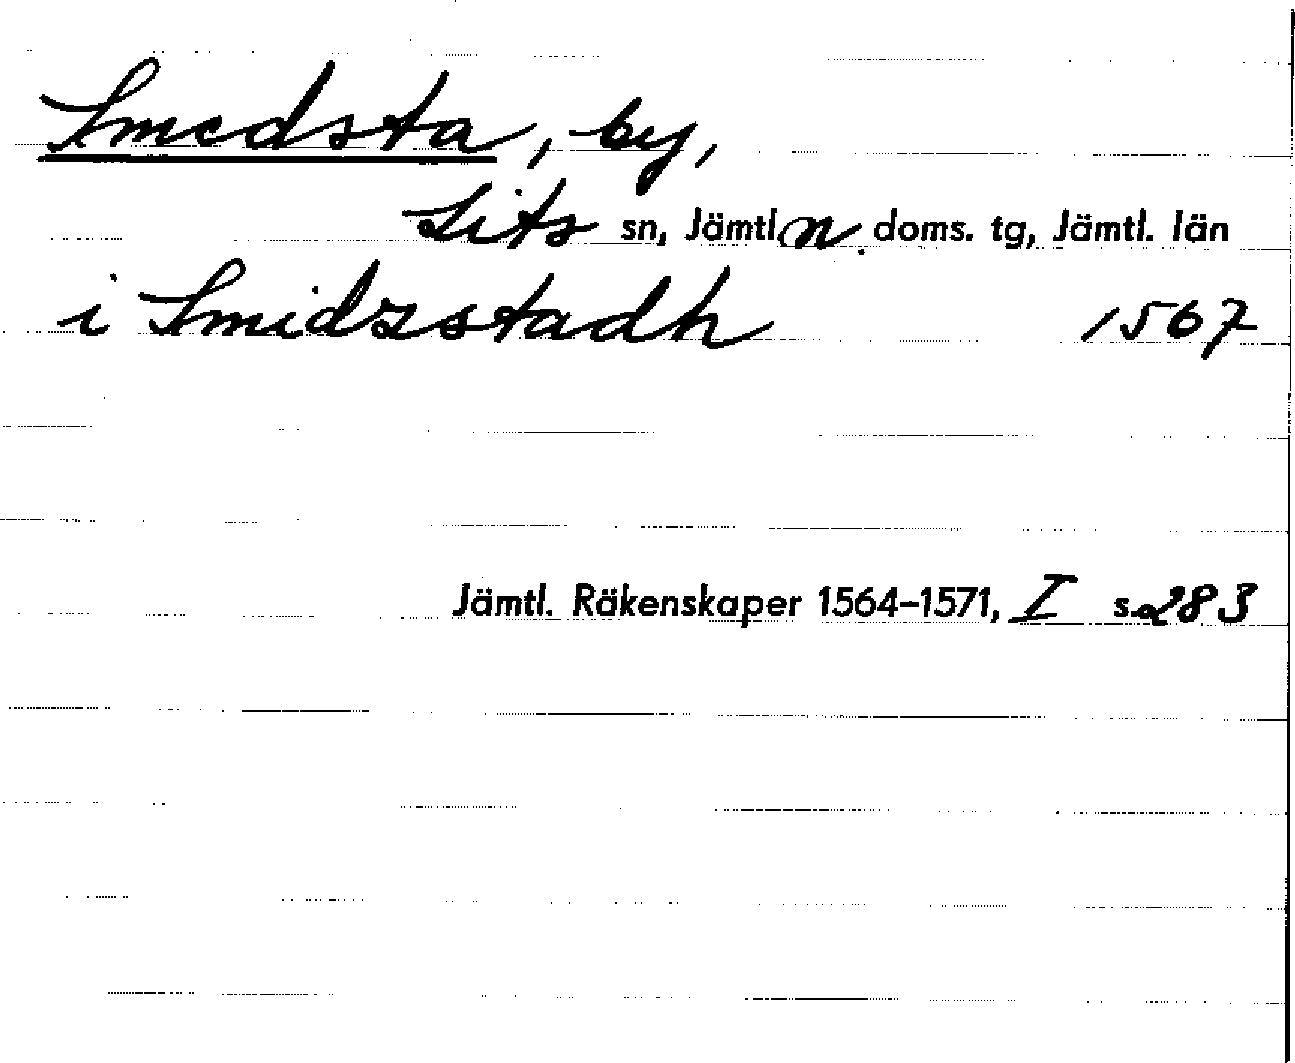 Smedsta, by,
Lits sn, Jämtl. n. doms. tg, Jämtl. län
i Smidzstadh 1567
Jämtl. Räkenskaper 1564-1571, I s. 283